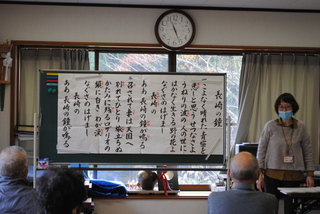 長崎の鐘
こよなく晴れた青空を
悲しと思うせつなさよ
うねりの波の人の世に
はかなく生きる野の花よ
なぐさめはげまし
長崎の
ああ 長崎の鐘が鳴る
召されて妻は天国へ
別れてひとり旅立ちぬ
かたみに残るロザリオの
鎖に白きわが涙
なぐさめはげまし
長崎の
ああ 長崎の鐘が鳴る